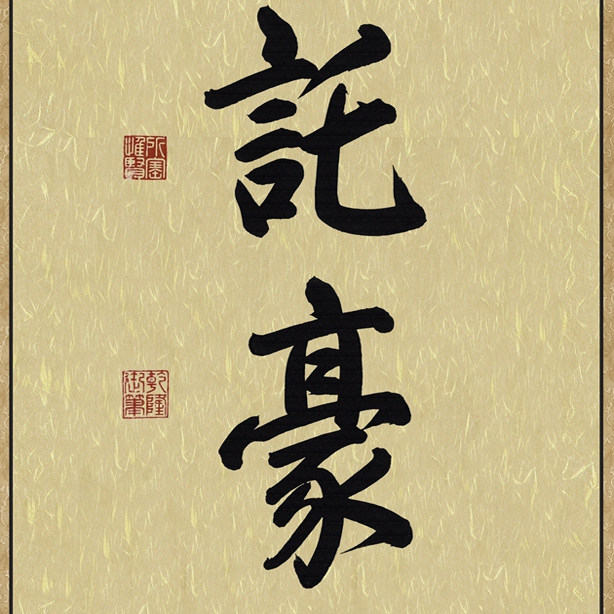 託豪
所寶惟賢
乾隆御筆